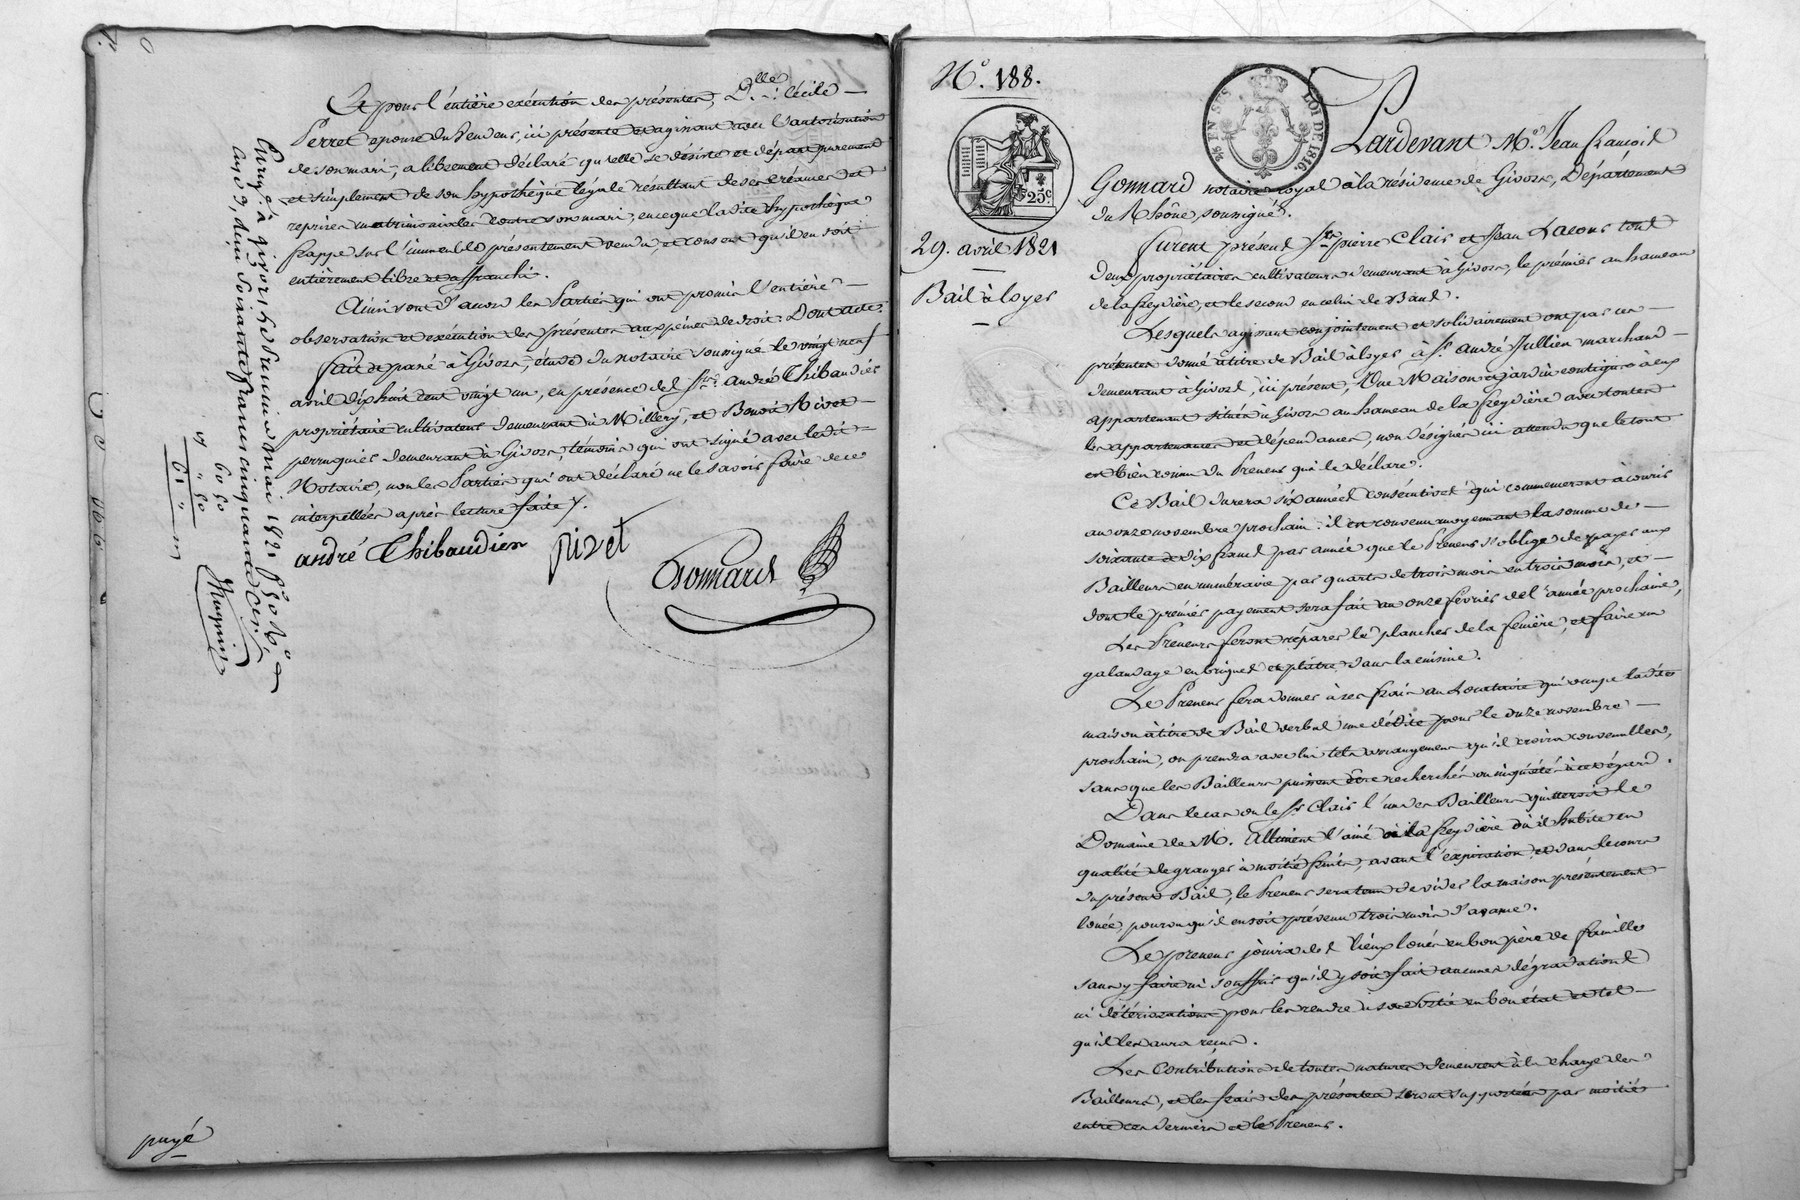 Et pour l'entière exécution des présentes, D.lle Cécile
Perret epouse du vendeur, ici présente et agissant avec l'autorisation
de son mari, a librement déclaré qu'elle se désiste et départ purement
et simplement de son hypothèque légale résultant de ses créances et
reprises matrimoniales contre son mari, en ce que la dite hypothèque
frappe sur l'immeuble présentement vendu, et consent qu'il en soit
entièrement libre et affranchi.
Ainsi sont d'accord les Parties qui ont promis l'entière
observation et exécution des présentes aux peines de droit. Dont acte.
fait et passé à Givors, étude du notaire soussigné le vingt neuf
avril dix huit cent vingt un, en présence des Srs. andré Thibaudier
propriétaire cultivateur demeurant à Millery, et Benoit Rivet
perruquier demeurant à Givors, témoins qui ont signé avec le dit
Notaire, non les Parties qui ont déclaré ne le savoir faire de ce
interpellées après lecture faite.
andré Thibaudier rivet
Gonnard
Enreg.é à givors le 1821
reçu soixante francs cinquante cent.
60 50
61
payé
N.o 188.
25c
29. avril 1821
Bail à loyer
LOI DE 1816.
Pardevant M.e Jean françois
Gonnard notaire royal à la résidence de Givors, Département
du Rhône, soussigné.
furent présens Srs. pierre Clair et Jean Lacour tout
deux propriétaires cultivateurs demeurant à Givors, le prémier au hameau
de la freydière, et le second en celui de Band.
Lesquels agissant conjointement et solidairement ont par ces
présentes donné à titre de Bail à loyer à Sr. André Jullien marchand
demeurant à Givors, ici présent, Une Maison et jardin contigus à eux
appartenant situés à Givors au hameau de la freydière avec toutes
les appartenances et dépendances, non désignés ici attendu que le tout
est bien connu du Preneur qui le déclare.
Ce Bail durera six années consécutives qui commenceront à courir
au onze novembre prochain: il est convenu moyennant la somme de
soixante et dix francs par année que le Preneur s'oblige de payer aux
Bailleurs en numéraire par quarts de trois mois en trois mois, et
dont le prémier payement sera fait au onze février de l'année prochaine,
Les Preneurs feront réparer les planches de la fenière, et faire un
galandage en briques et plâtre dans la cuisine.
Le Preneur fera donner à ses frais au Locataire qui occupe la dite
maison à titre de Bail verbal une dédite pour le onze novembre
prochain, ou prendra avec lui tels arrangemens qu'il croira convenables,
sans que les Bailleurs puissent être recherchés ou inquiétés à cet égard.
Dans le cas ou le Sr. Clair l'un des Bailleurs quitteroit le
Domaine de M. Alliment l'ainé à la freydière où il habite en
qualité de granger à moitié fruits, avant l'expiration et dans le cours
du présent Bail, le Preneur sera tenu de vider la maison présentement
louée, pourvu qu'il en soit prévenu trois mois d'avance.
Le preneur jouira des lieux loués en bon père de famille
sans y faire ni souffrir qu'il y soit fait aucunes dégradations
ni détériorations pour les rendre à sa sortie en bon état et tel
qu'il les aura reçus.
Les Contributions de toutes natures demeurent à la charge des
Bailleurs, et les frais des présentes seront supportés par moitié
entre ces derniers et le Preneur.